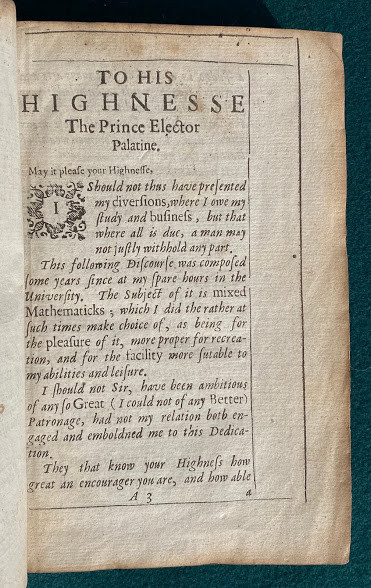 TO HIS
HIGHNESSE
The Prince Elector
Palatine.
May it pleaſe your Highneſſe,
I Should not thus have preſented
my diverſions, where I owe my
ſtudy and buſineſs, but that
where all is due, a man may
not juſtly withhold any part.
This following Diſcourſe was compoſed
ſome years ſince at my ſpare hours in the
Univerſity. The Subject of it is mixed
Mathematicks; which I did the rather at
ſuch times make choice of, as being for
the pleaſure of it, more proper for recrea-
tion, and for the facility more ſutable to
my abilities and leiſure.
I ſhould not Sir, have been ambitious
of any ſo Great (I could not of any Better)
Patronage, had not my relation both en-
gaged and emboldned me to this Dedica-
tion.
They that know your Highneſs how
great an encourager you are, and how able
A 3
a